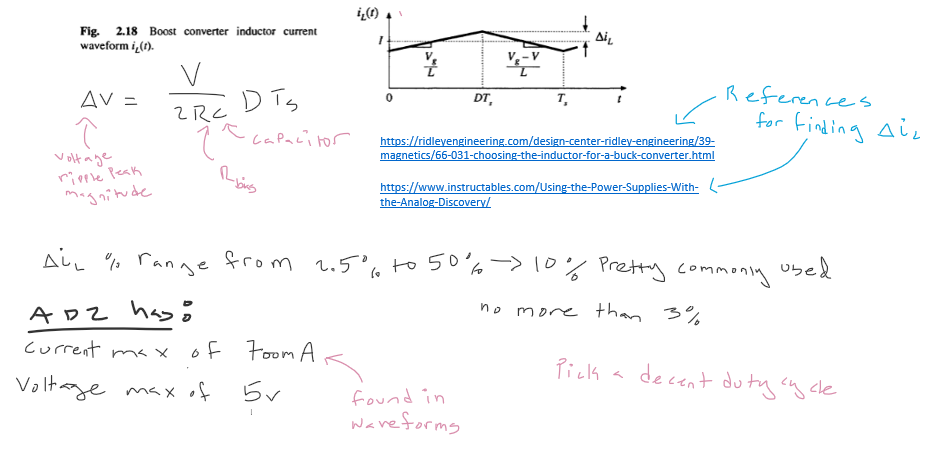 Fig. 2.18 Boost converter inductor current
waveform i_L(t).
i_L(t)
I
Δi_L
V_g
L
V_g – V
L
0
DT_s
T_s
t
ΔV = V / 2RC DTs
voltage
ripple peak
magnitude
capacitor
R bias
References
for finding Δi_L
https://ridleyengineering.com/design-center-ridley-engineering/39-
magnetics/66-031-choosing-the-inductor-for-a-buck-converter.html
https://www.instructables.com/Using-the-Power-Supplies-With-
the-Analog-Discovery/
Δi_L % range from 2.5% to 50% → 10% Pretty commonly used
no more than 3%
AD2 has:
Current max of 700mA
Voltage max of 5v
found in
Waveforms
Pick a decent duty cycle